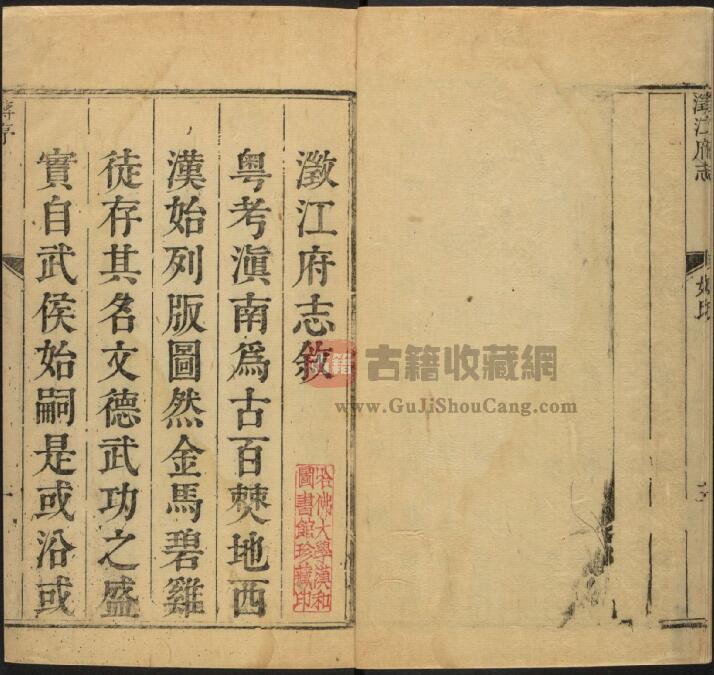 澂江府志
澂江府志敘
粤考滇南爲古百僰地西
漢始列版圖然金馬碧雞
徒存其名文德武功之盛
實自武侯始嗣是或沿或
哈佛大學漢和
圖書館珍藏印
古籍收藏網
www.GuJiShouCang.com
序
一